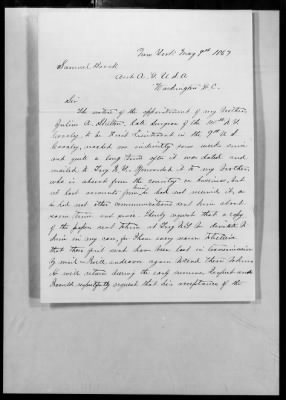 New York May 9th 1867
Samuel Breck
Asst A. G. U.S.A
Washington D.C.
Sir
The notice of the appointment of my brother
Julius A. Skilton, late Surgeon of the N.Y.
Cavalry, to be First Lieutenant in the 9th U.S.
Cavalry, reached me indirectly some weeks since
and quite a long time after it was dated and
mailed to Troy N.Y. I forwarded it to my brother,
who is absent from the country on business, but
at last accounts from him he had not received it, as
he did not other communications sent him about
same time and since. I hereby request that a copy
of the papers sent to him at Troy N.Y. be directed to
him in my care, for I have very serious
that those first sent have been lost in transmission
by mail I will endeavor again to send them to him
He will return during the early summer, I expect and
I would respectfully request that his acceptance of the